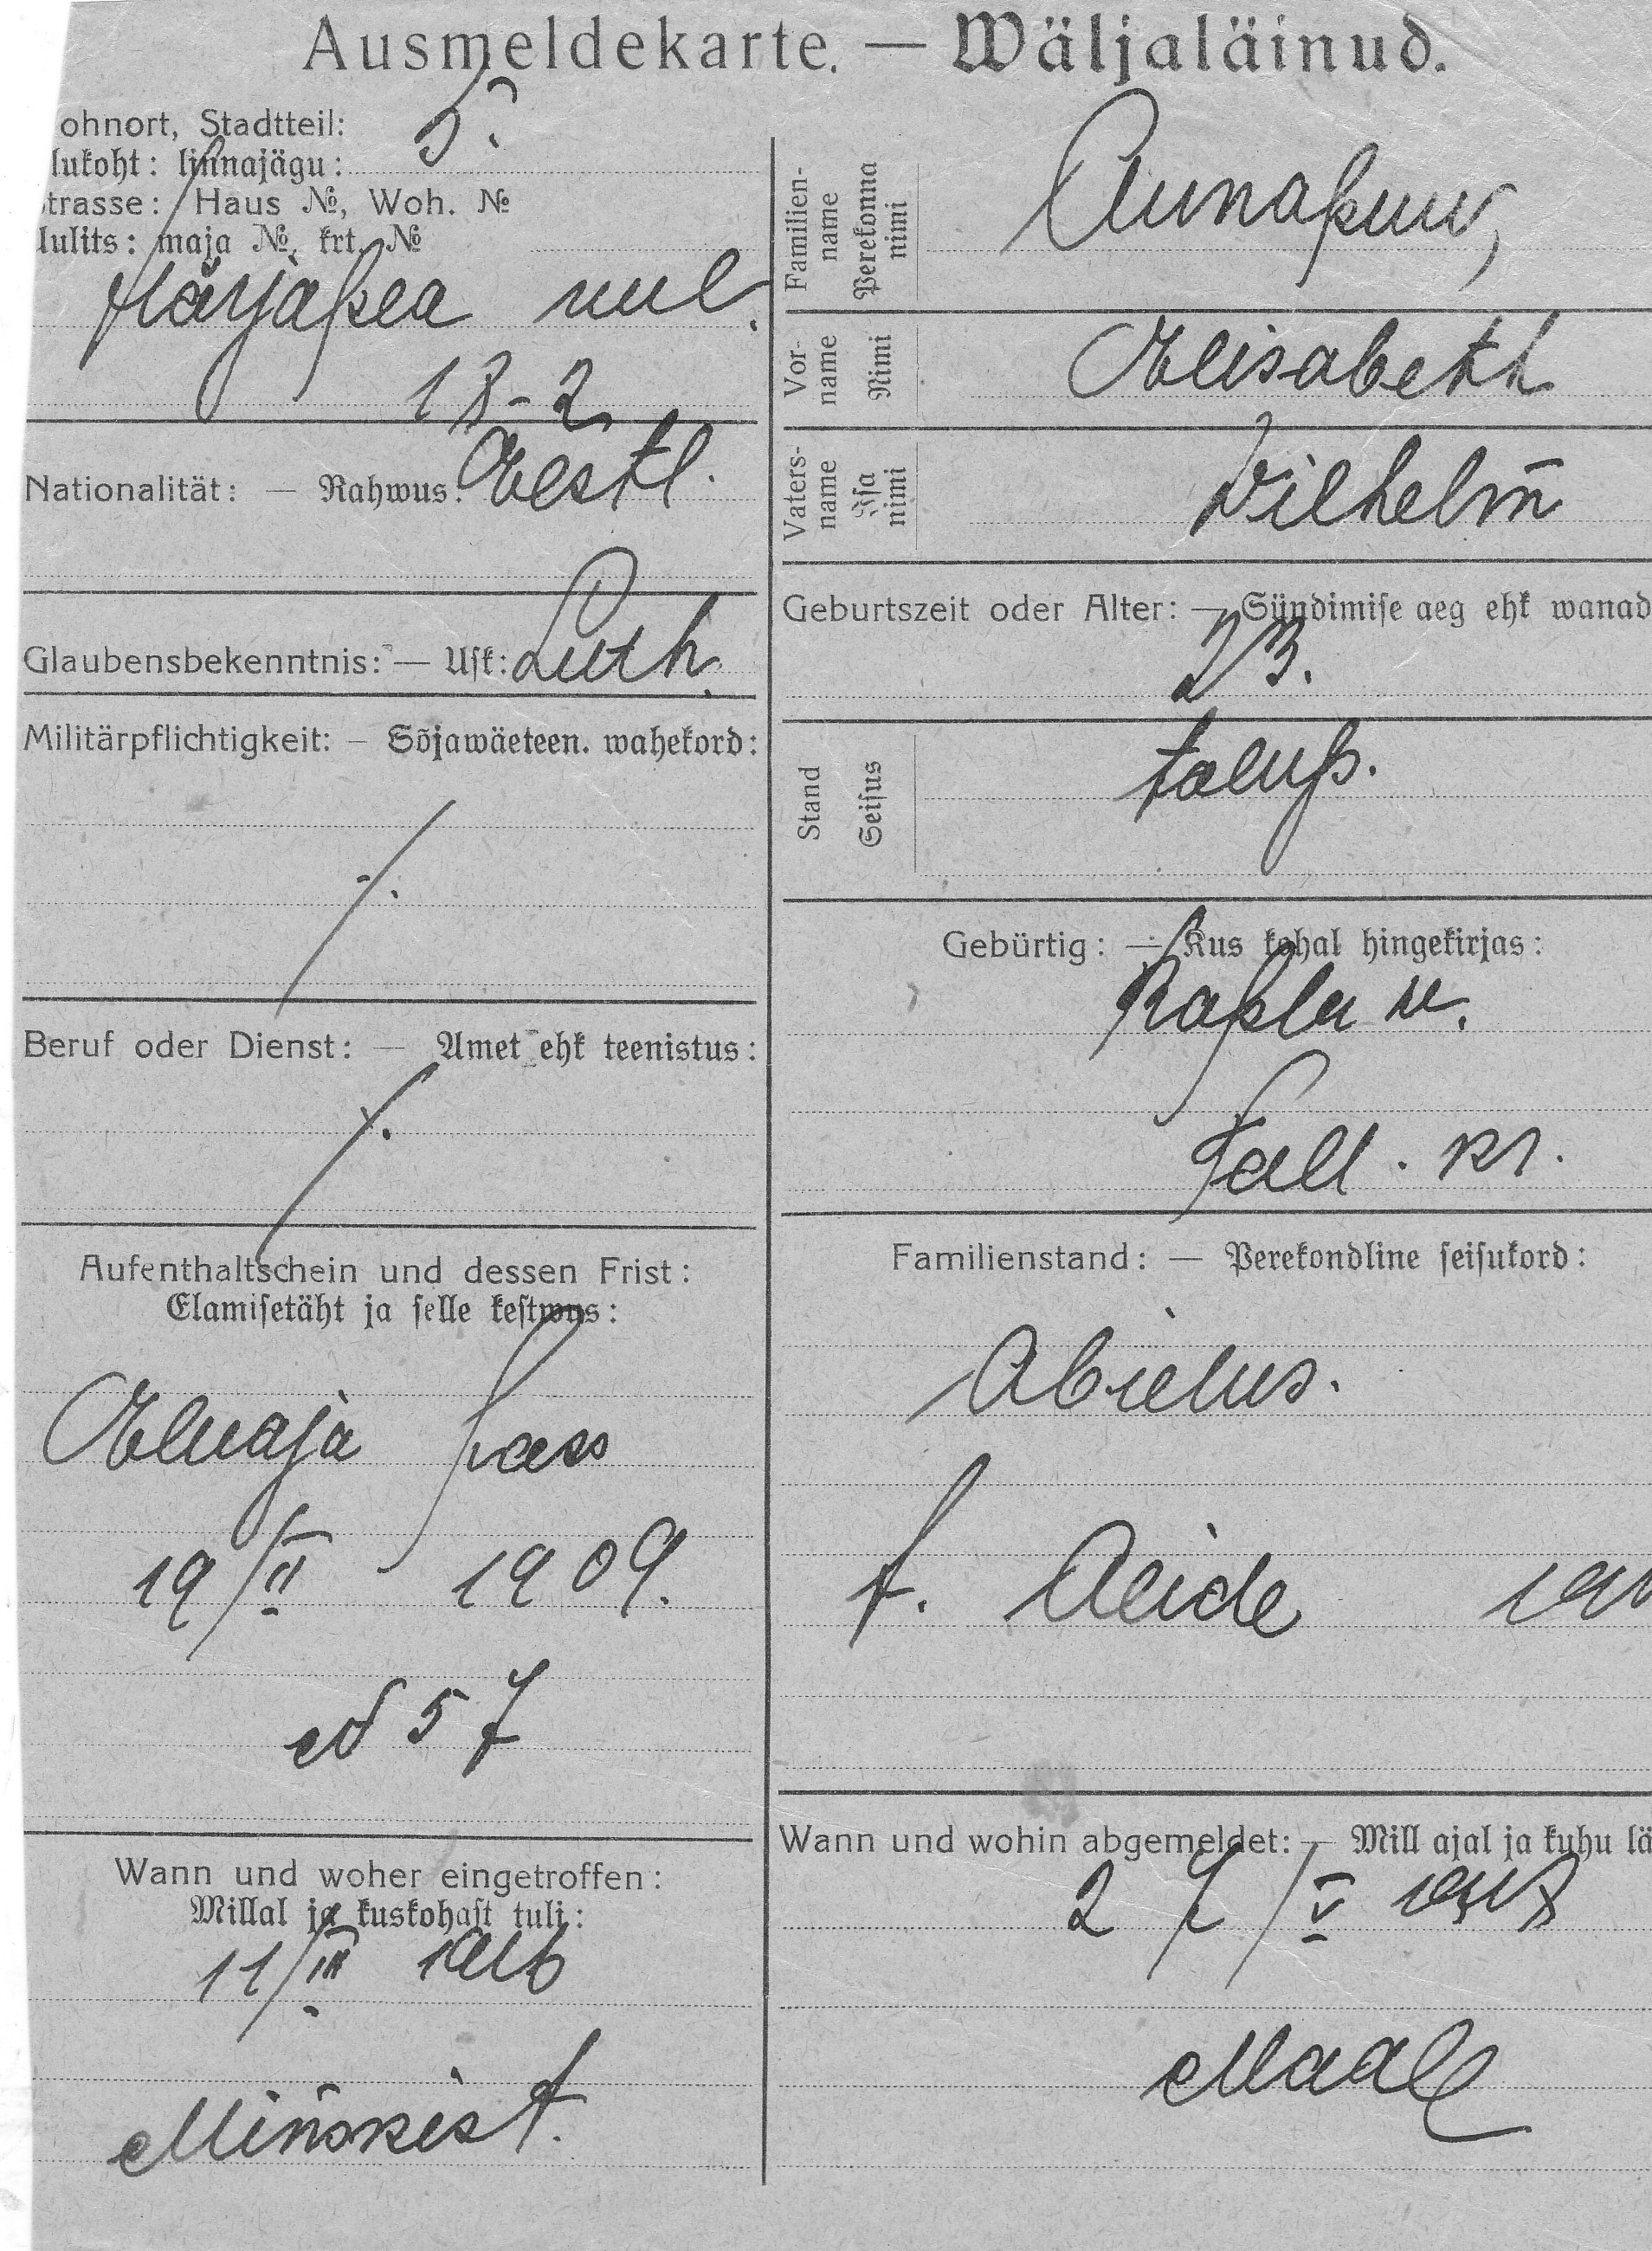 Ausmeldekarte. — Wäljaläinud.
ohnort, Stadtteil: 5.
lukoht: linnajägu:
trasse: Haus №, Woh. №
lulits: maja №, krt. №
Härjapea uul.
13-2
Nationalität: — Rahwus: Eestl.
Glaubensbekenntnis: — Usk: Luth.
Militärpflichtigkeit: — Sõjawäeteen. wahekord:
Beruf oder Dienst: — Amet ehk teenistus:
Aufenthaltschein und dessen Frist:
Elamisetäht ja selle kestwus:
Eluaja pass
19/II 1909.
№ 57
Wann und woher eingetroffen:
Millal ja kuskohast tuli:
11/III 1916
Minskist.
Familien-name Perekonna nimi
Vor-name Nimi Elisabeth
Vaters-name Isa nimi Wilhelm̄
Geburtszeit oder Alter: — Sündimise aeg ehk wanad
23.
Stand Seisus talup.
Gebürtig: — Kus kohal hingekirjas:
Rapla w.
Tall. kr.
Familienstand: — Perekondline seisukord:
Abielus.
t. Aide
Wann und wohin abgemeldet: — Mill ajal ja kuhu lä
27/V
Maale